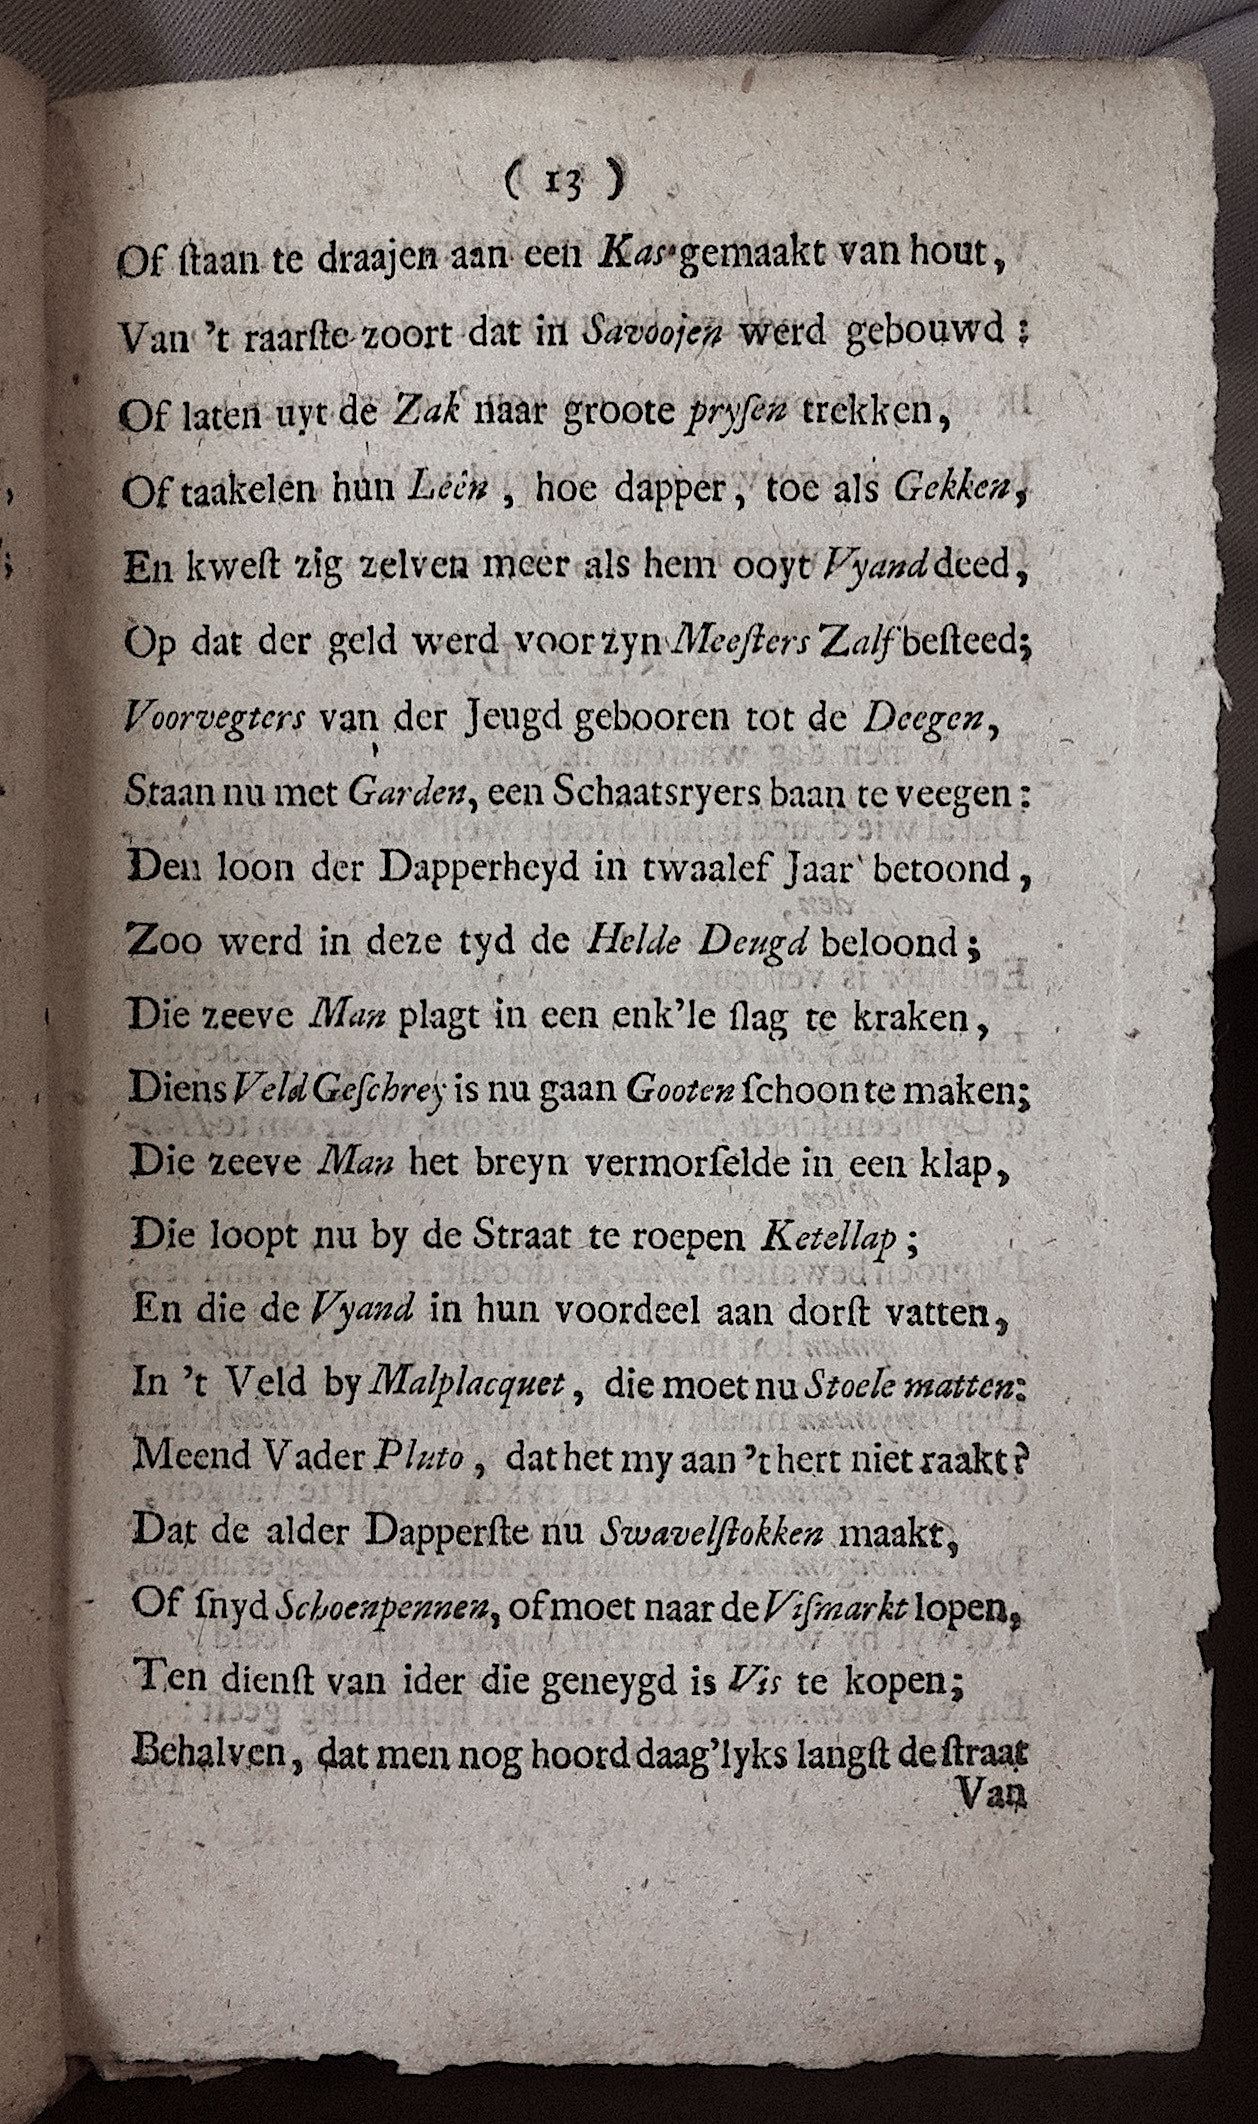 ( 13 )
Of ſtaan te draajen aan een Kas gemaakt van hout,
Van 't raarſte zoort dat in Savoojen werd gebouwd :
Of laten uyt de Zak naar groote pryſen trekken,
Of taakelen hun Leên , hoe dapper, toe als Gekken,
En kweſt zig zelven meer als hem ooyt Vyand deed,
Op dat der geld werd voor zyn Meeſters Zalf beſteed;
Voorvegters van der Jeugd gebooren tot de Deegen,
Staan nu met Garden, een Schaatsryers baan te veegen:
Den loon der Dapperheyd in twaalef Jaar betoond,
Zoo werd in deze tyd de Helde Deugd beloond;
Die zeeve Man plagt in een enk'le ſlag te kraken,
Diens Veld Geſchrey is nu gaan Gooten ſchoon te maken;
Die zeeve Man het breyn vermorſelde in een klap,
Die loopt nu by de Straat te roepen Ketellap;
En die de Vyand in hun voordeel aan dorſt vatten,
In 't Veld by Malplacquet, die moet nu Stoele matten:
Meend Vader Pluto, dat het my aan 't hert niet raakt?
Dat de alder Dapperſte nu Swavelſtokken maakt,
Of ſnyd Schoenpennen, of moet naar de Viſmarkt lopen,
Ten dienſt van ider die geneygd is Vis te kopen;
Behalven, dat men nog hoord daag'lyks langſt de ſtraat
Van